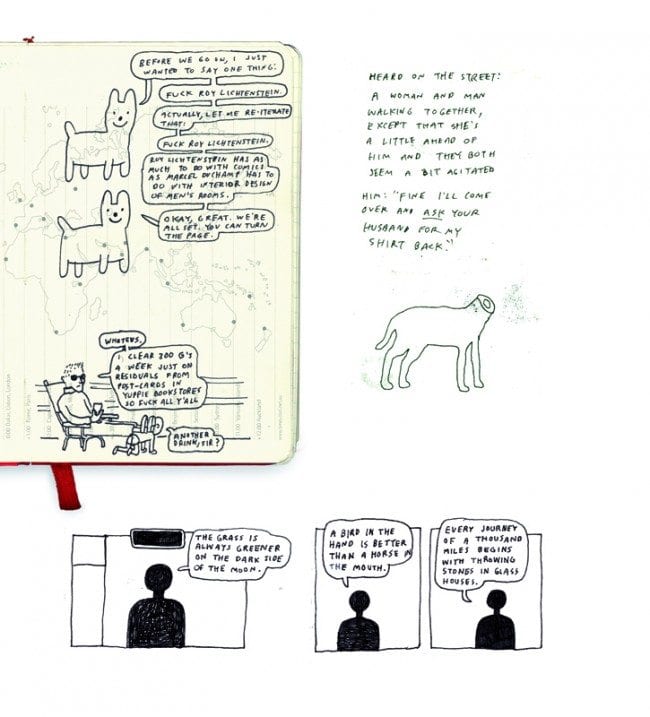 BEFORE WE GO ON, I JUST
WANTED TO SAY ONE THING:
FUCK ROY LICHTENSTEIN.
ACTUALLY, LET ME RE-ITERATE
THAT:
FUCK ROY LICHTENSTEIN.
ROY LICHTENSTEIN HAS AS
MUCH TO DO WITH COMICS
AS MARCEL DUCHAMP HAS TO
DO WITH INTERIOR DESIGN
OF MEN'S ROOMS.
OKAY, GREAT. WE'RE
ALL SET. YOU CAN TURN
THE PAGE.
WHATEVS.
I CLEAR 200 G'S
A WEEK JUST ON
RESIDUALS FROM
POST-CARDS IN
YUPPIE BOOKSTORES
SO FUCK ALL Y'ALL
ANOTHER
DRINK, SIR?
HEARD ON THE STREET:
A WOMAN AND MAN
WALKING TOGETHER,
EXCEPT THAT SHE'S
A LITTLE AHEAD OF
HIM AND THEY BOTH
SEEM A BIT AGITATED
HIM: "FINE I'LL COME
OVER AND ASK YOUR
HUSBAND FOR MY
SHIRT BACK."
THE GRASS IS
ALWAYS GREENER
ON THE DARK SIDE
OF THE MOON.
A BIRD IN THE
HAND IS BETTER
THAN A HORSE IN
THE MOUTH.
EVERY JOURNEY
OF A THOUSAND
MILES BEGINS
WITH THROWING
STONES IN GLASS
HOUSES.